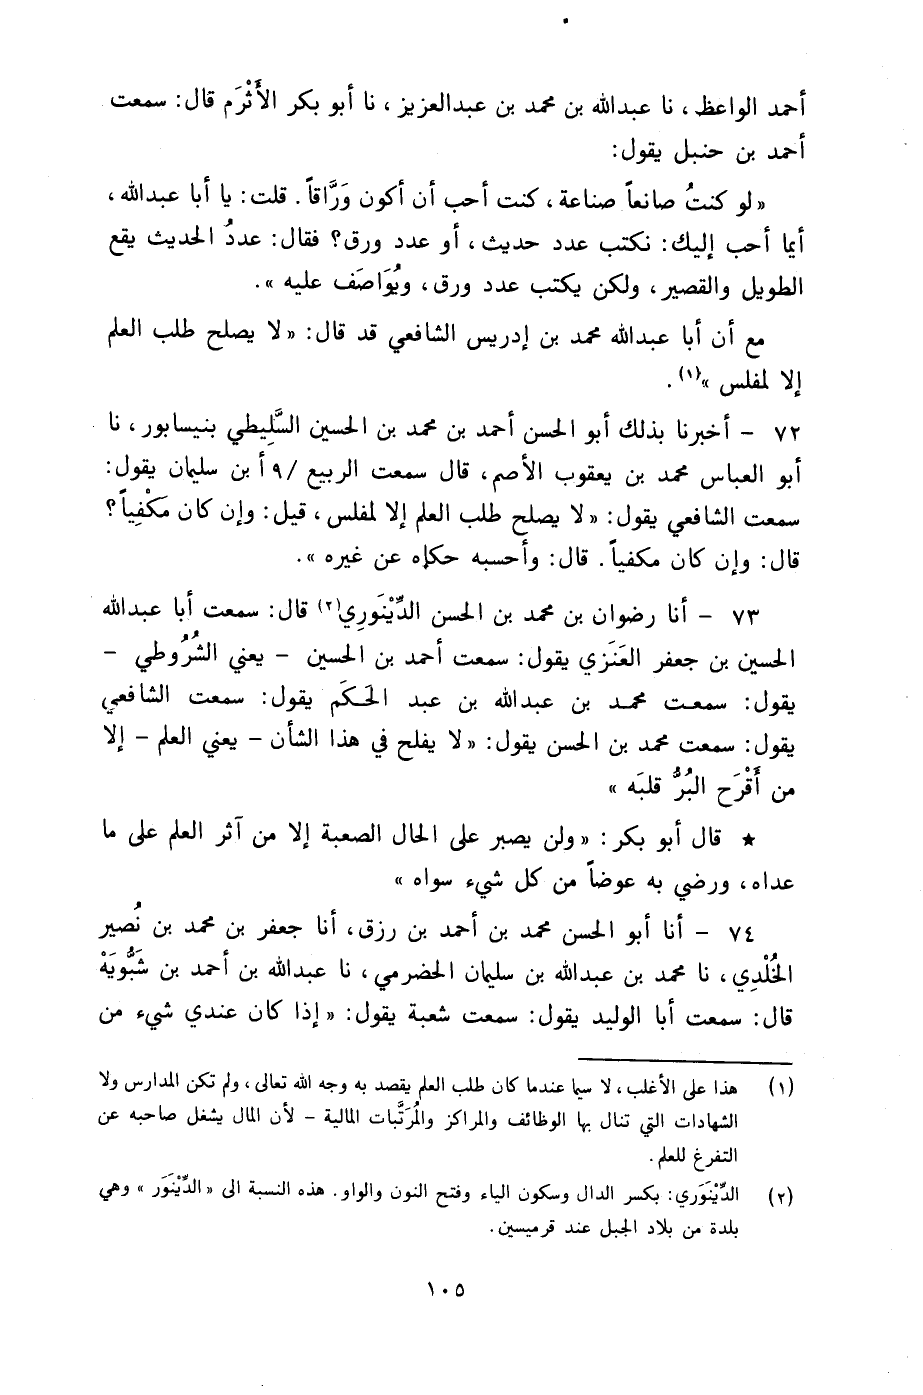 أحمد الواعظ، نا عبدالله بن محمد بن عبدالعزيز، نا أبو بكر الأَثْرَم قال: سمعت
أحمد بن حنبل يقول:
«لو كنتُ صانعاً صناعة، كنت أحب أن أكون وَرَّاقاً. قلت: يا أبا عبدالله،
أيما أحب إليك: نكتب عدد حديث، أو عدد ورق؟ فقال: عددُ الحديث يقع
الطويل والقصير، ولكن يكتب عدد ورق، ويُوَاصَف عليه».
مع أن أبا عبدالله محمد بن إدريس الشافعي قد قال: «لا يصلح طلب العلم
إلا لمفلس»(١).
٧٢ - أخبرنا بذلك أبو الحسن أحمد بن محمد بن الحسين السَّلِيطي بنيسابور، نا
أبو العباس محمد بن يعقوب الأصم، قال سمعت الربيع /٩أ بن سليمان يقول:
سمعت الشافعي يقول: «لا يصلح طلب العلم إلا لمفلس، قيل: وإن كان مَكْفِياً؟
قال: وإن كان مكفياً. قال: وأحسبه حكاه عن غيره».
٧٣ - أنا رضوان بن محمد بن الحسن الدِّيْنَوَرِي(٢) قال: سمعت أبا عبدالله
الحسين بن جعفر العَنَزي يقول: سمعت أحمد بن الحسين - يعني الشُّرُوطي -
يقول: سمعت محمد بن عبدالله بن عبد الحَكَم يقول: سمعت الشافعي
يقول: سمعت محمد بن الحسن يقول: «لا يفلح في هذا الشأن - يعني العلم - إلا
من أَقْرَح البُرُّ قلبَه»
★ قال أبو بكر: «ولن يصبر على الحال الصعبة إلا من آثر العلم على ما
عداه، ورضي به عوضاً من كل شيء سواه»
٧٤ - أنا أبو الحسن محمد بن أحمد بن رزق، أنا جعفر بن محمد بن نُصير
الخُلْدِي، نا محمد بن عبدالله بن سليمان الحضرمي، نا عبدالله بن أحمد بن شَبُّويَهْ
قال: سمعت أبا الوليد يقول: سمعت شعبة يقول: «إذا كان عندي شيء من
(١) هذا على الأغلب، لا سيما عندما كان طلب العلم يقصد به وجه الله تعالى، ولم تكن المدارس ولا
الشهادات التي تنال بها الوظائف والمراكز والمُرَتَّبات المالية - لأن المال يشغل صاحبه عن
التفرغ للعلم.
(٢) الدِّيْنَوَري: بكسر الدال وسكون الياء وفتح النون والواو. هذه النسبة الى «الدِّيْنَوَر» وهي
بلدة من بلاد الجبل عند قرميسين.
١٠٥